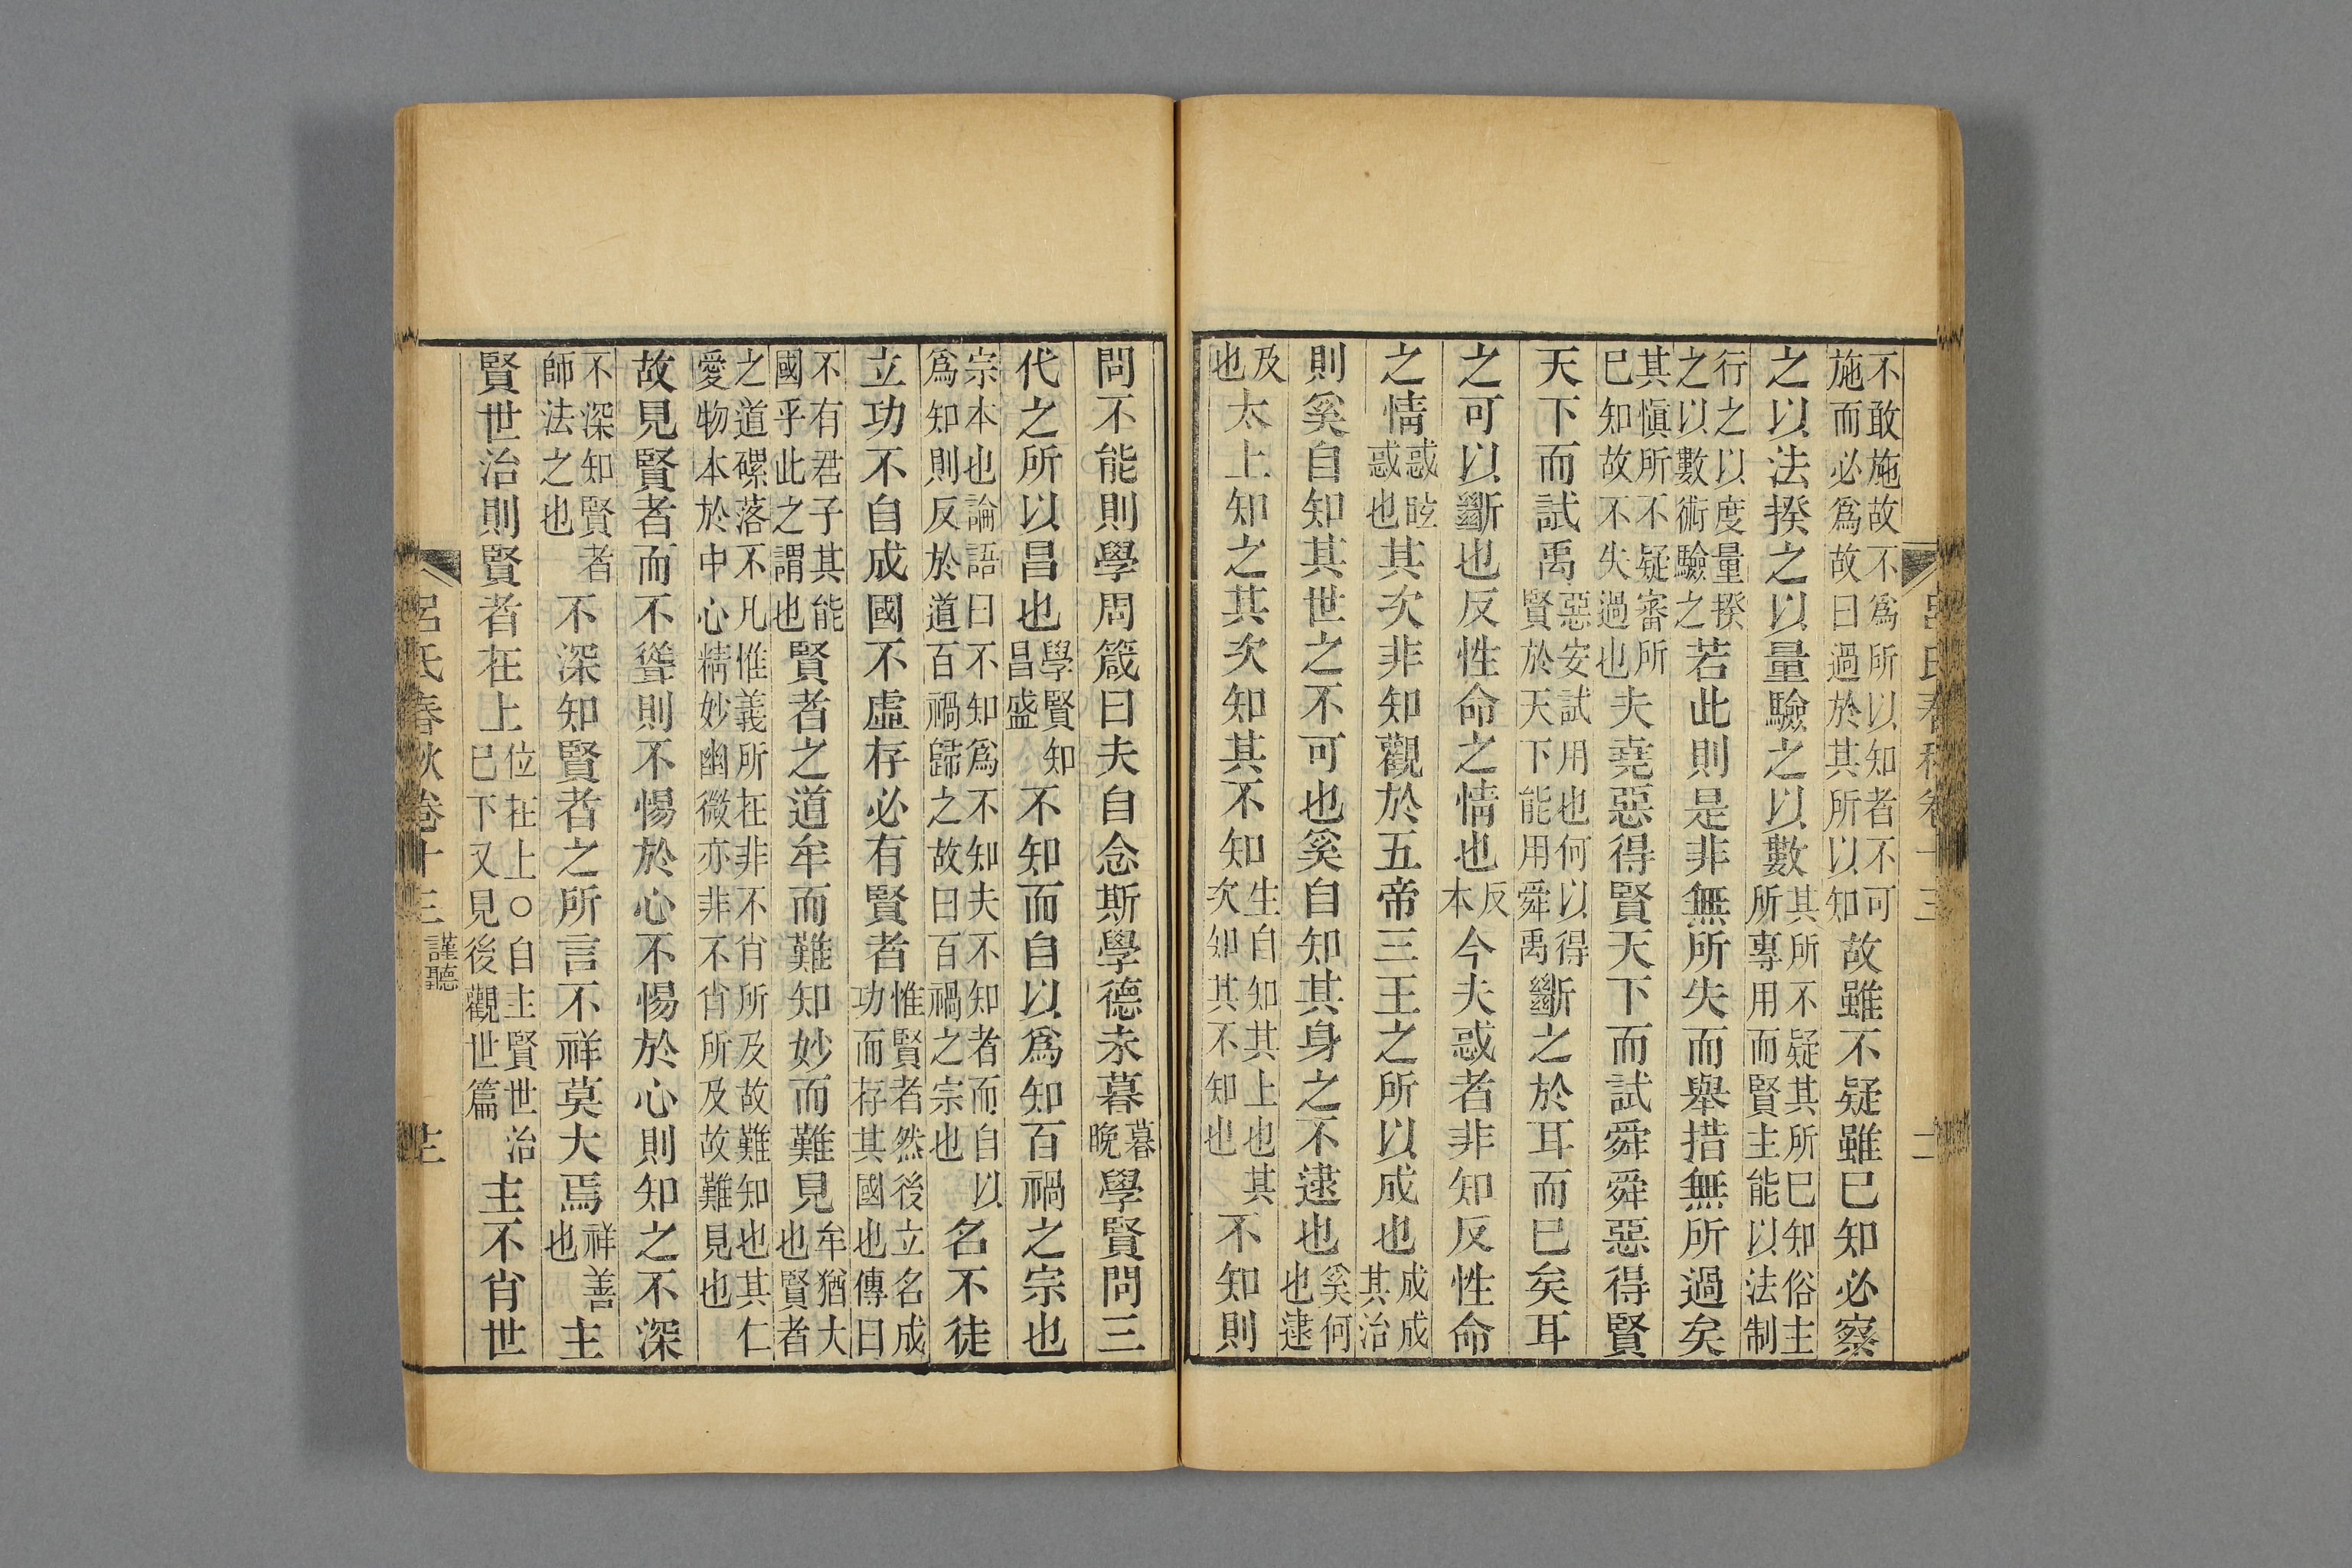 不敢施故不爲所以知者不可施而必爲故曰過於其所以知故雖不疑雖巳知必察
之以法揆之以量驗之以數其所不疑其所巳知俗主所專用而賢主能以法制
行之以度量揆之以數術驗之若此則是非無所失而舉措無所過矣
其慎所不疑審所巳知故不失過也夫堯惡得賢天下而試舜舜惡得賢
天下而試禹惡安試用也何以得賢於天下能用舜禹斷之於耳而巳矣耳
之可以斷也反性命之情也反本今夫惑者非知反性命
之情惑眩惑也其次非知觀於五帝三王之所以成也成成其治
則奚自知其世之不可也奚自知其身之不逮也奚何也逮
及也太上知之其次知其不知生自知其上也其次知其不知也不知則
問不能則學周箴曰夫自念斯學德未暮暮晚學賢問三
代之所以昌也學賢知昌盛不知而自以爲知百禍之宗也
宗本也論語曰不知爲不知夫不知者而自以爲知則反於道百禍歸之故曰百禍之宗也名不徒
立功不自成國不虛存必有賢者惟賢者然後立名成功而存其國也傳曰
不有君子其能國乎此之謂也賢者之道牟而難知妙而難見牟猶大也賢者
之道磥落不凡惟義所在非不肖所及故難知也其仁愛物本於中心精妙幽微亦非不肖所及故難見也
故見賢者而不聳則不惕於心不惕於心則知之不深
不深知賢者師法之也不深知賢者之所言不祥莫大焉祥善也主
賢世治則賢者在上位在上○自主賢世治巳下又見後觀世篇主不肖世
呂氏春秋卷十三 謹聽